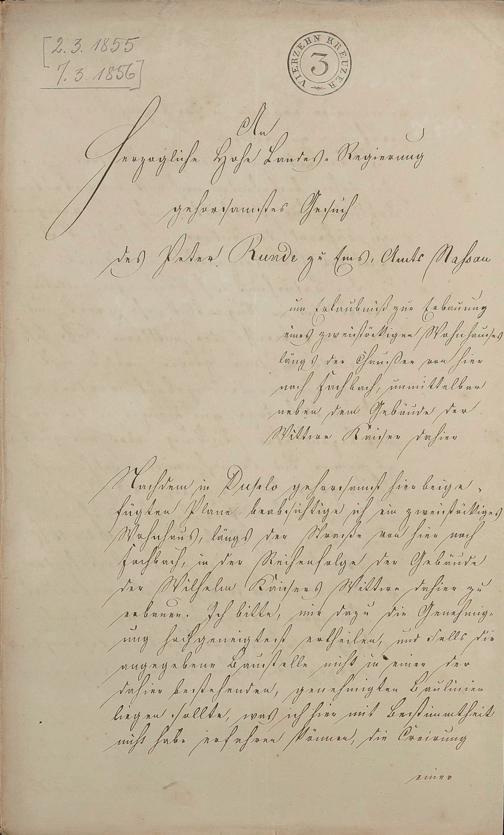 [2. 3. 1855
7. 3. 1856]
VIERZEHN KREUZER
3
An
Herzogliche Hohe Landes-Regierung
gehorsamstes Gesuch
des Peter Runde zu Ems, Amts Nassau
um Erlaubniß zur Erbauung
eines zweistöckigen Wohnhauses
längs der Chaussee von hier
nach Fachbach, unmittelbar
neben dem Gebäude der
Wittwe Kaiser dahier
Nachdem in Duplo gehorsamst hier beige-
fügten Plane beabsichtige ich ein zweistöckiges
Wohnhaus, längs der Straße von hier nach
Fachbach, in der Reihenfolge der Gebäude
der Wilhelm Kaisers Wittwe dahier zu
erbauen. Ich bitte, mir dazu die Genehmig-
ung hochgeneigtest ertheilen, und falls die
angegebene Baustelle nicht in einer der
dahier bestehenden, genehmigten Baulinien
liegen sollte, was ich hier mit Bestimmtheit
nicht habe erfahren können, die Creirung
einer